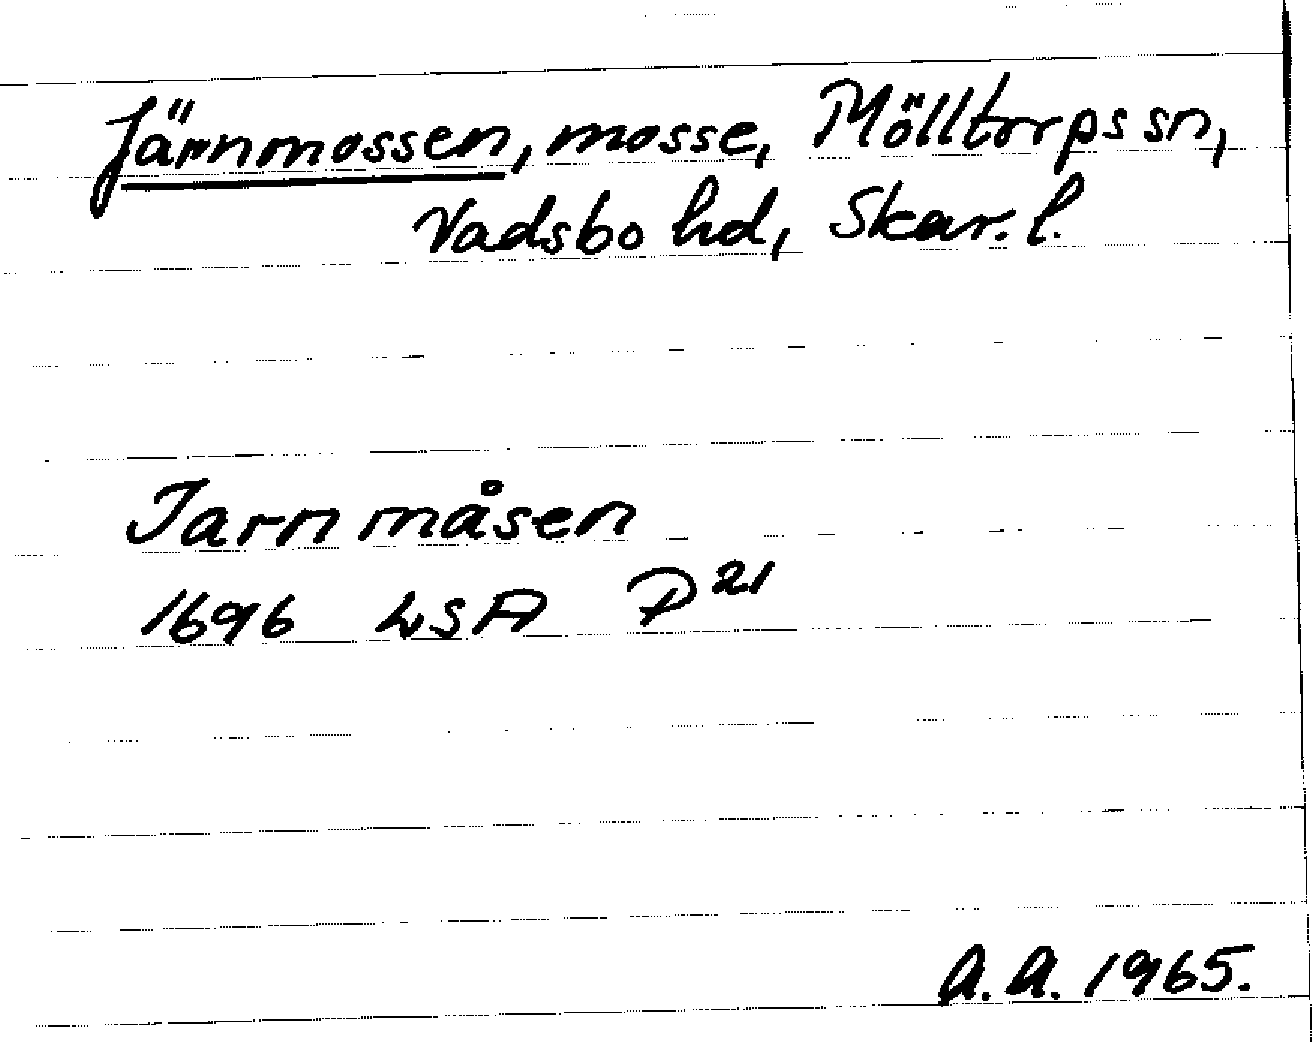 Järnmossen, mosse, Mölltorps sn,
Vadsbo hd, Skar. l.
Jarn måsen
1696 LSA P21
A.A. 1965.